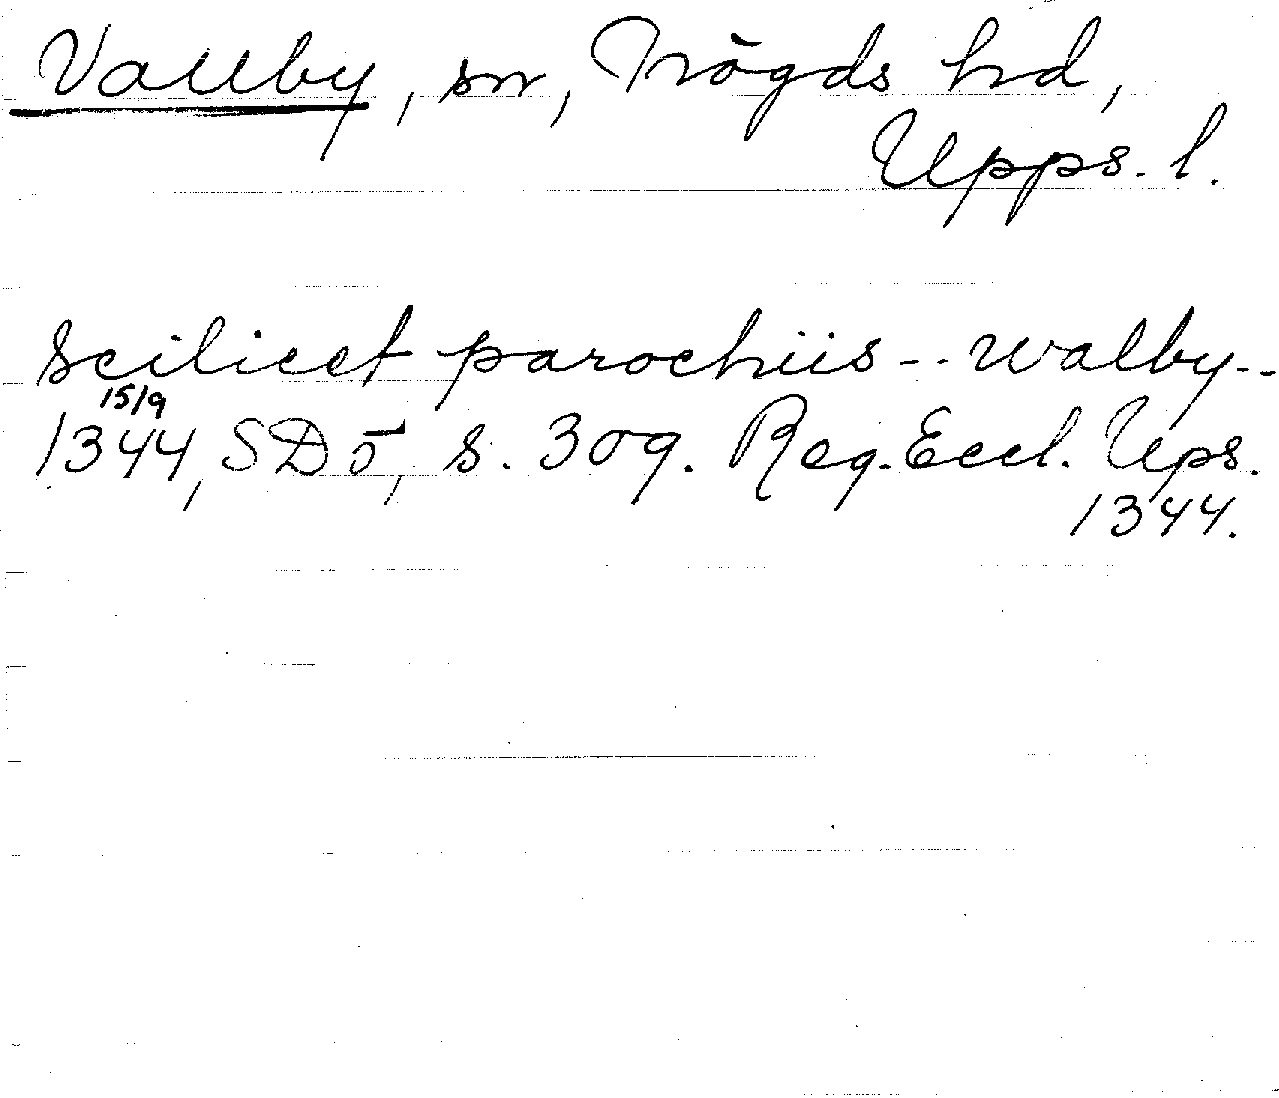 Vallby, sn, Trögds hd,
Upps. l.
Scilicet parochiis -- Walby --
15/9
1344, SD 5, s. 309. Reg. Eccl. Ups.
1344.